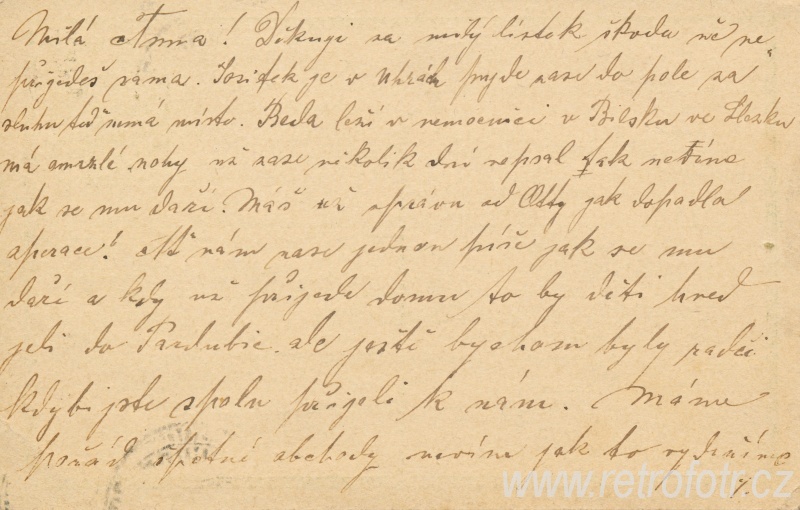 Milá Anno! Děkuji za milý lístek škoda že ne
přijedeš sama. Josífek je v Uhrách pujde zase do pole za
sluhu teď nemá místo. Beda leží v nemocnici v Bilsku ve Slezku
má omrzlé nohy už zase několik dní nepsal tak nevíme
jak se mu daří. Máš už zprávu od Otty jak dopadla
operace! Ať nám zase jednou píše jak se mu
daří a kdy už přijede domu to by děti hned
jeli do Pardubic. ale ještě bychom byly radči
kdybi jste spolu přijeli k nám. Máme
pořád špatné obchody nevím jak to vydržíme
www.retrofotr.cz